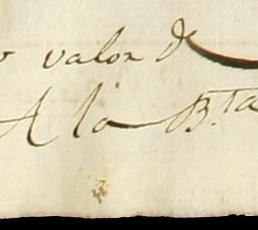 valor de
A la B.ta